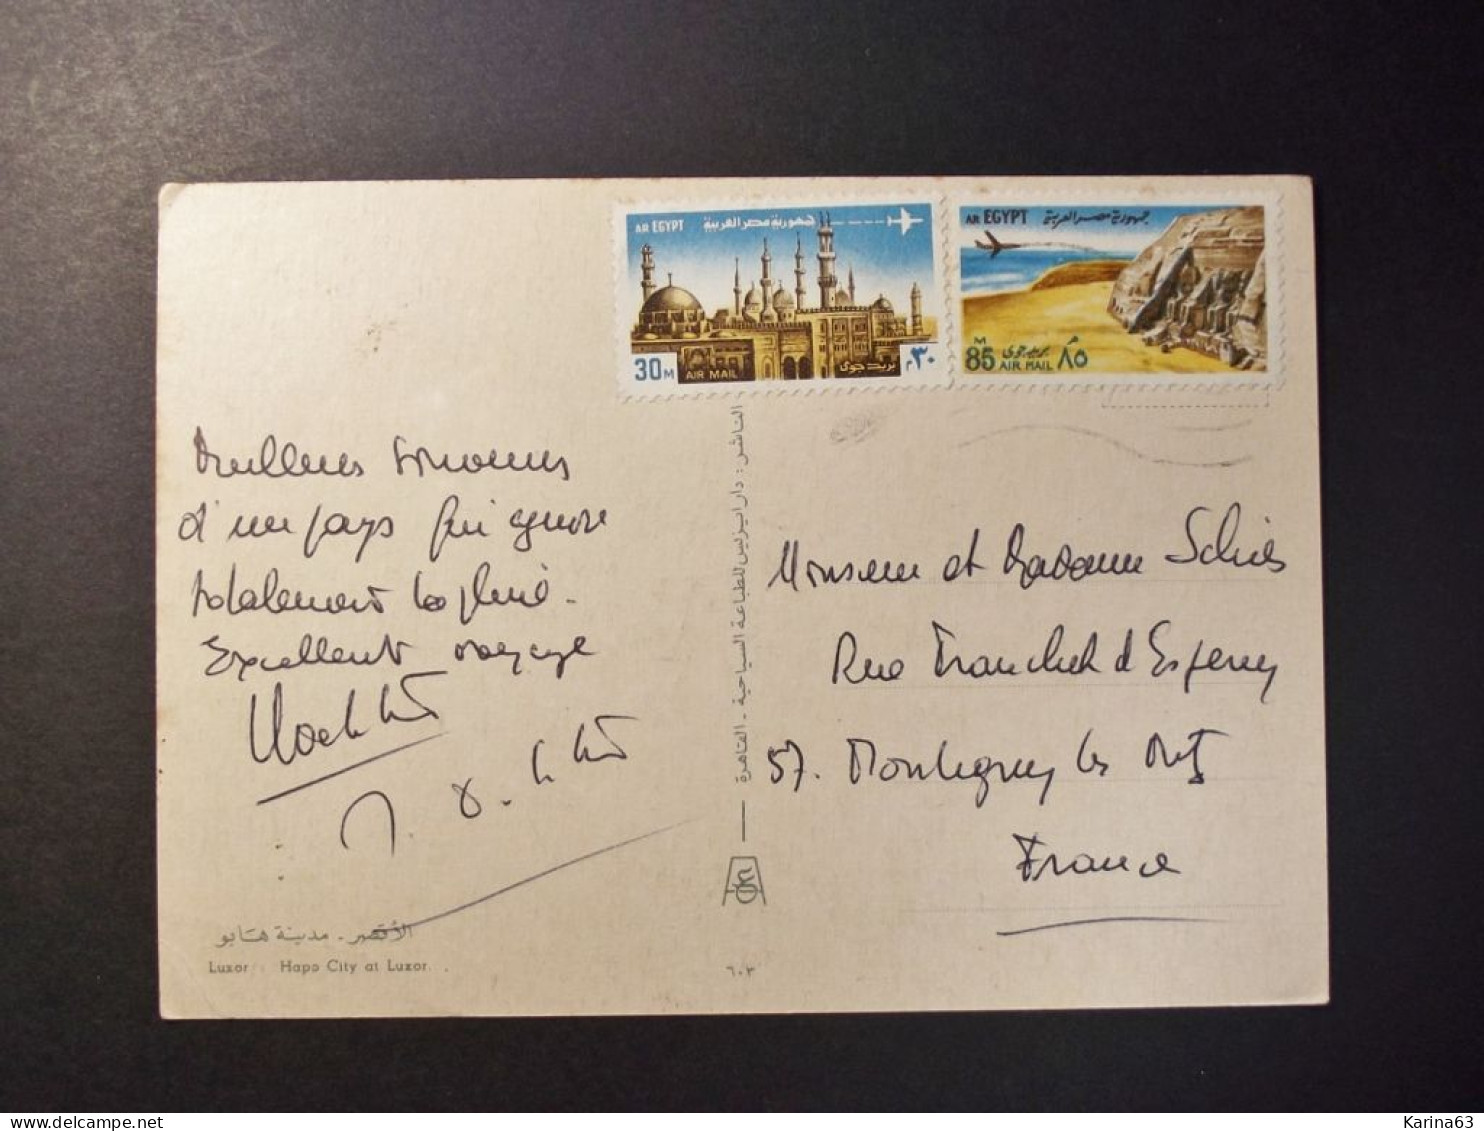 AR EGYPT جمهورية مصر العربية
30M AIR MAIL بريد جوى ٣٠م
AR EGYPT جمهورية مصر العربية
M 85 بريد جوى AIR MAIL ٨٥م
d'un pays qui ignore
totalement la pluie.
Excellent voyage
الأقصر - مدينة هابو
Luxor Hapo City at Luxor.
الناشر: دار ايزيس للطباعة السياحية - القاهرة
٦٠٣
Monsieur et Madame
Rue Franchet d'Esperey
57. Montigny les Metz
France
Karina63